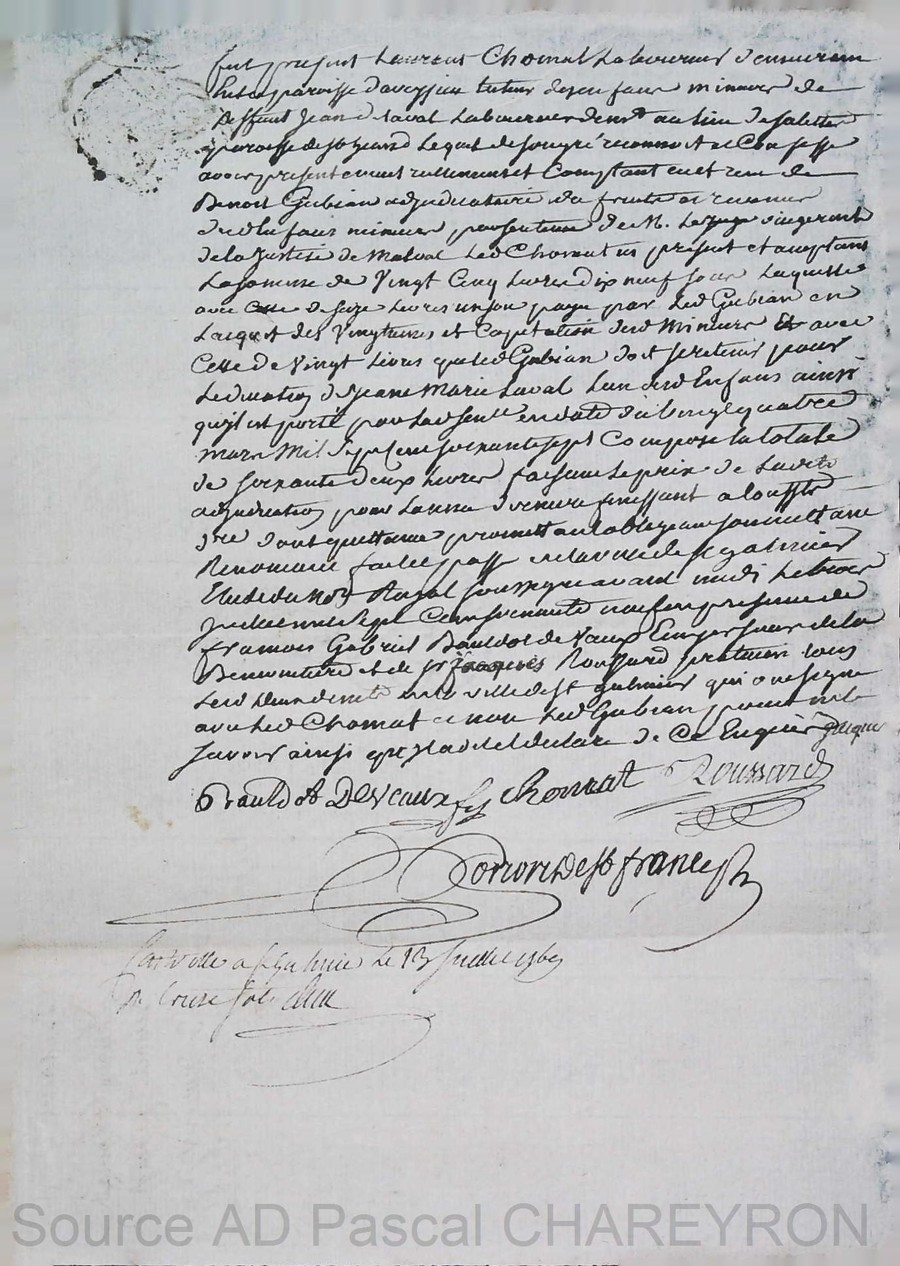 fut present Laurent Chomat Laboureur
paroisse d'aveysieu tuteur des enfans mineurs de
deffunt Jean Laval Laboureur au lieu de
paroisse de Lequel de son gré reconnoit et Confesse
avoir presentement reellement et Comptant eu et receu de
Benoit Gubian adjudicataire des fruits et revenus
desdits mineurs par sentence de M. Le juge
de la justice de Malval Led Chomat present et acceptant
La somme de Vingt Cinq Livres dix neuf sous Laquelle
avec Celle de seze Livres un sou paye par Led Gubian en
L'acquit des Vingtiemes et Capitation desd Mineurs avec
Celle de Vingt Livres que led Gubian doit se retenir pour
L'education de Jeane Marie Laval L'un desd Enfans ainsy
qu'il est porté par La sentce en date du vingt quatre
mars Mil Sept Cens soixante sept Compose La totale
de soixante deux Livres faisant Le prix de Ladite
adjudication pour L'année finissant a
dont quittance promettant obligeant soumettant
Renoncant fait et passé en la ville de St galmier
Etude du nore Royal soussigné avant midi Le treze
juillet mil Sept Cens soixante neuf en presence de
francois Gabriel Bauldot de Vaux
et de sr jacques Roussard praticien tous
Les deux de cette ville de St galmier qui ont signé
avec Led Chomat et non Led Gubian pour ne le
savoir ainsi qu'il a dit et declaré de Ce Enquis
Bauldot DeVeaux Chomat Roussard
de St francois
Controllé a St Galmier Le 13 Juillet 1769
Rx treize sols
Source AD Pascal CHAREYRON